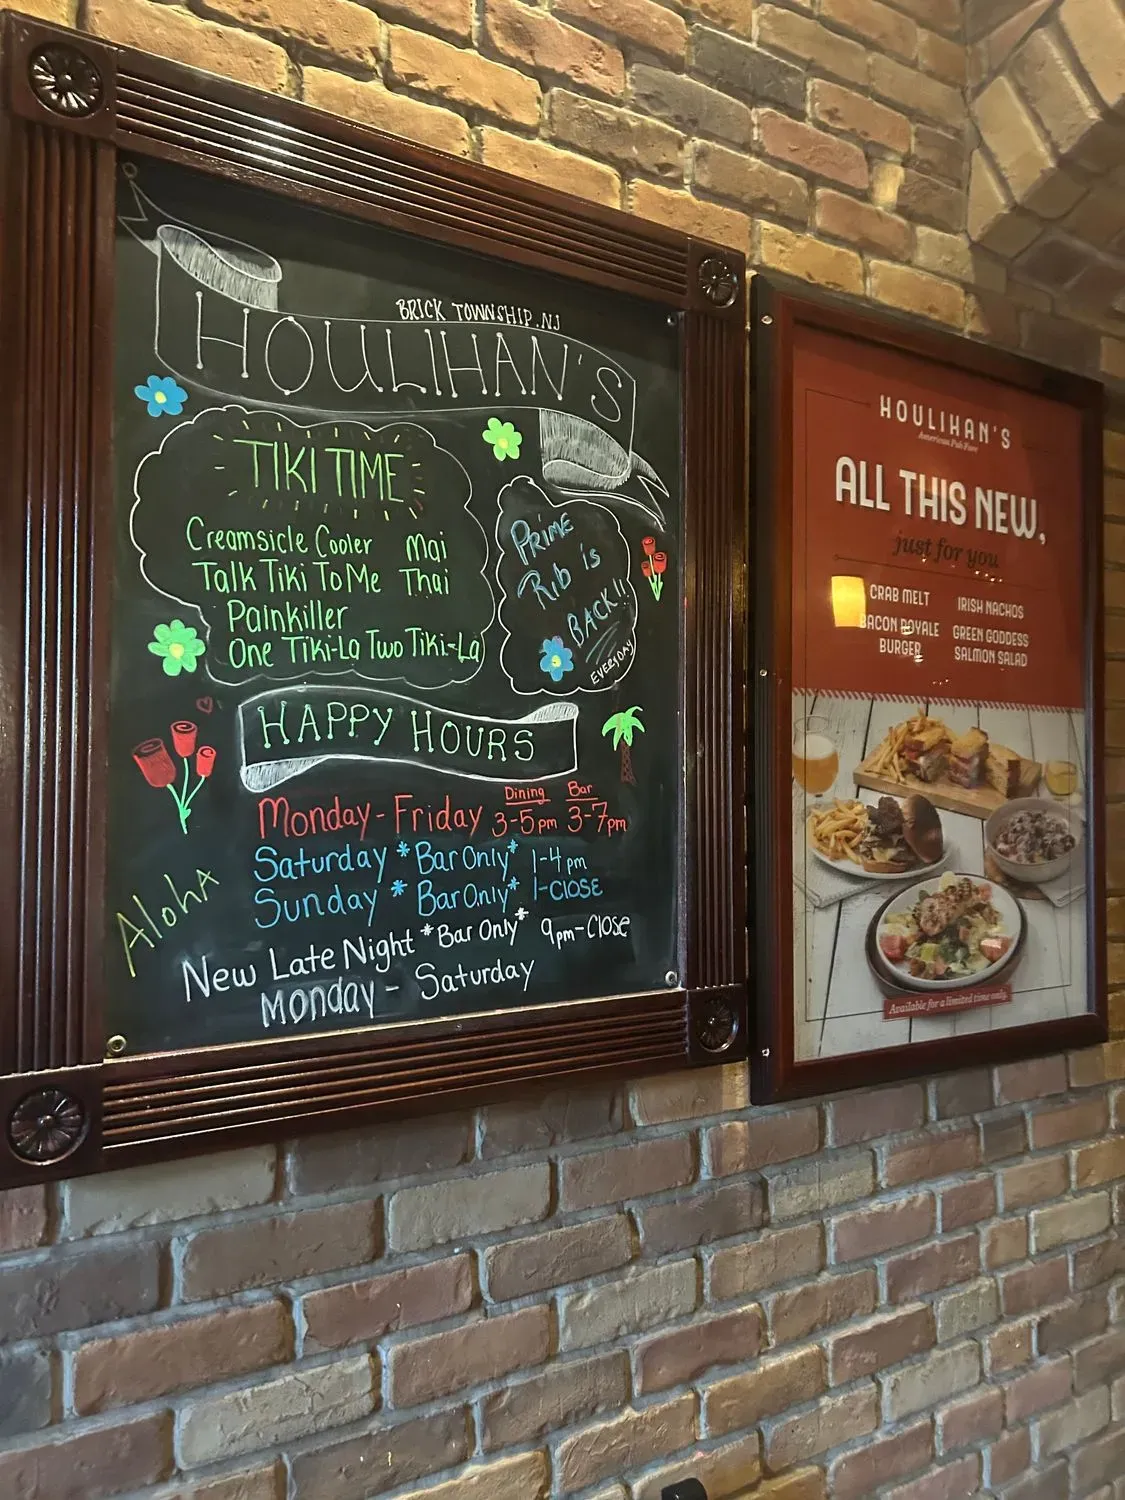 BRICK TOWNSHIP.NJ
HOULIHAN'S
TIKI TIME
Creamsicle Cooler Mai
Talk Tiki To Me Thai
Painkiller
One Tiki-La Two Tiki-La
PRIME
Rib is
BACK!!
EVERYDAY
HAPPY HOURS
Dining Bar
Monday - Friday 3-5pm 3-7pm
Saturday *Bar Only* 1-4pm
Sunday *Bar Only* 1-CLOSE
Aloha
New Late Night *Bar Only* 9pm-Close
Monday - Saturday
HOULIHAN'S
American Pub Fare
ALL THIS NEW,
just for you
CRAB MELT
BACON ROYALE
BURGER
IRISH NACHOS
GREEN GODDESS
SALMON SALAD
Available for a limited time only.